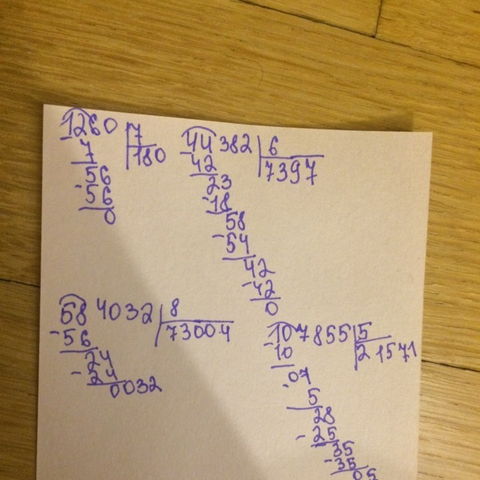 1260 7
7 180
56
-56
0
44382 6
-42 7397
23
-18
58
-54
42
-42
0
584032 8
-56 73004
24
-24
0032
107855 5
-10 21571
07
-5
28
-25
35
-35
05